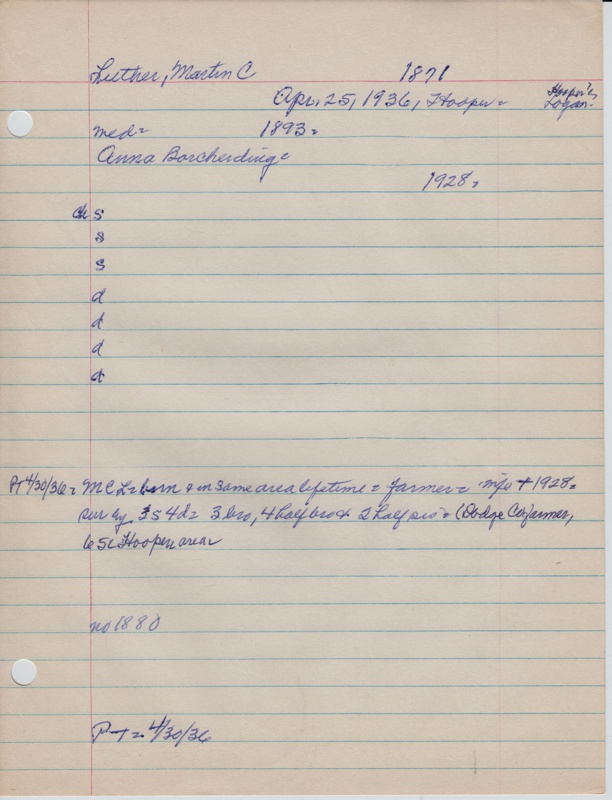 Luther, Martin C 1871
Apr. 25, 1936, Hooper = Hooper's Logan.
med = 1893 =
Anna Borcherding =
1928 =
ch s
s
s
d
d
d
d
Pt 4/30/36 = MCL = born & in same area lifetime = farmer = wife + 1928 =
sur by 3s 4d = 3 bro, 4 half bro & 2 half sis = (Dodge Co, farmer,
65 Hooper area
no 1880
PT = 4/30/36